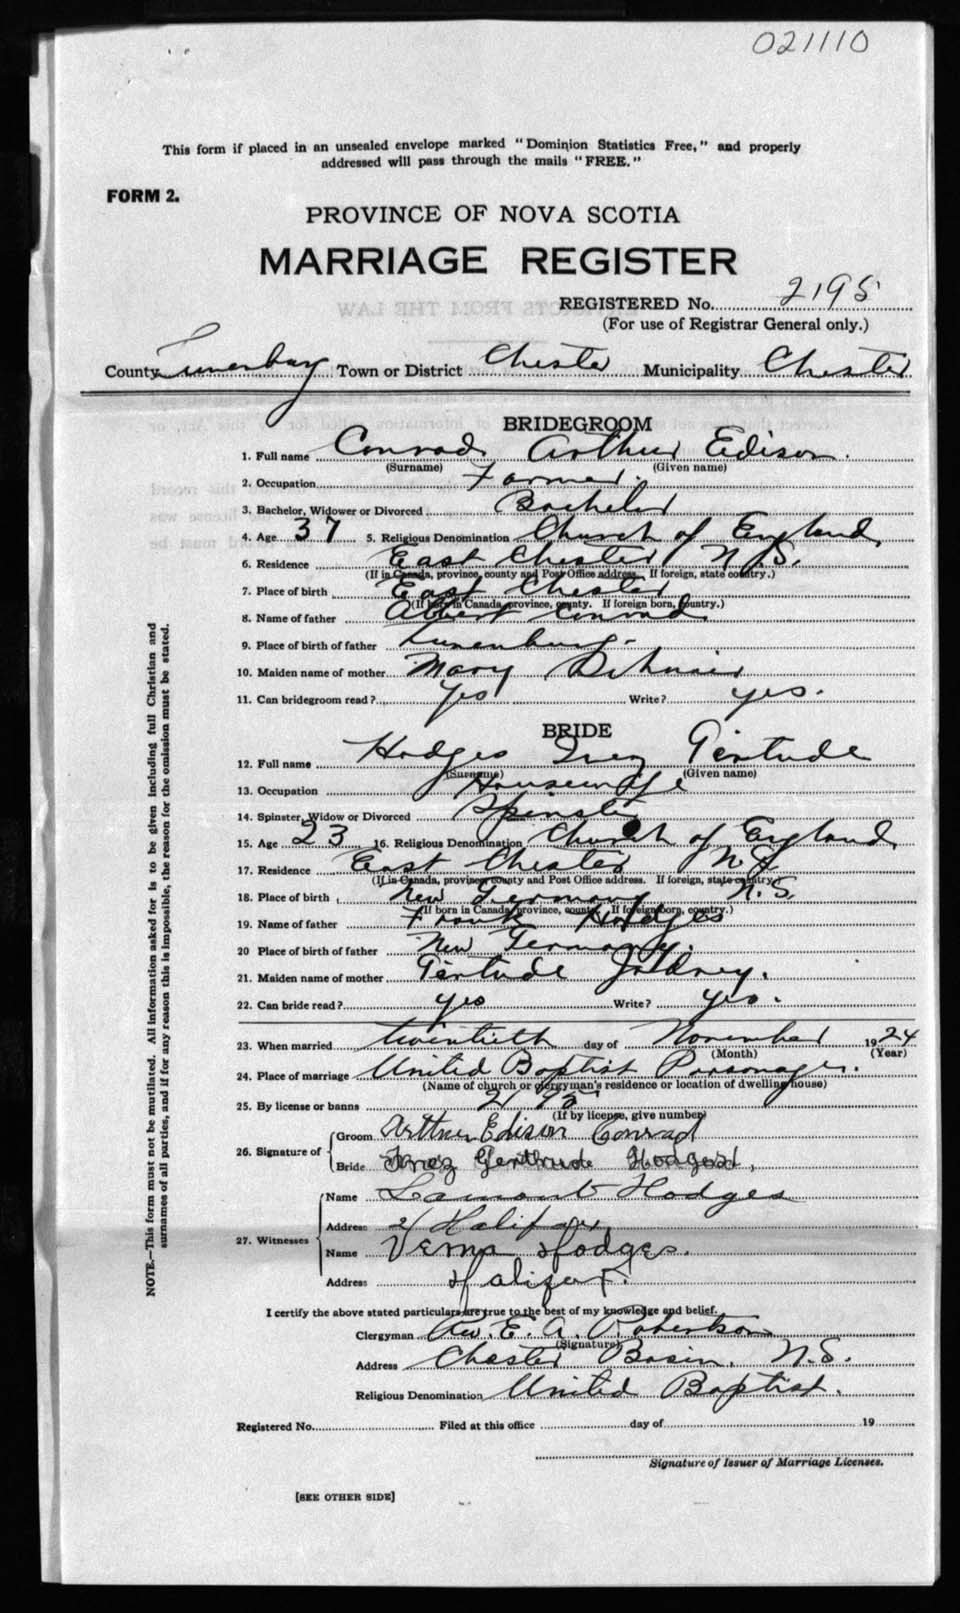 021110
This form if placed in an unsealed envelope marked "Dominion Statistics Free," and properly
addressed will pass through the mails "FREE."
FORM 2.
PROVINCE OF NOVA SCOTIA
MARRIAGE REGISTER
REGISTERED No. 2195
(For use of Registrar General only.)
County Lunenburg Town or District Chester Municipality Chester
BRIDEGROOM
1. Full name Conrad Arthur Edison
(Surname) (Given name)
2. Occupation Farmer.
3. Bachelor, Widower or Divorced Bachelor
4. Age 37 5. Religious Denomination Church of England
6. Residence East Chester N.S.
(If in Canada, province, county and Post Office address. If foreign, state country.)
7. Place of birth East Chester
(If born in Canada, province, county. If foreign born, country.)
8. Name of father Albert Conrad
9. Place of birth of father Lunenburg.
10. Maiden name of mother Mary
11. Can bridegroom read? Yes Write? yes.
BRIDE
12. Full name Hodges Inez Gertude
(Surname) (Given name)
13. Occupation Housewife
14. Spinster, Widow or Divorced Spinster
15. Age 23 16. Religious Denomination Church of England
17. Residence East Chester N.S.
(If in Canada, province, county and Post Office address. If foreign, state country.)
18. Place of birth New Germany N.S.
(If born in Canada, province, county. If foreign born, country.)
19. Name of father Frank Hodges
20 Place of birth of father New Germany.
21. Maiden name of mother Gertude
22. Can bride read? yes Write? yes.
23. When married twentieth day of November 1924
(Month) (Year)
24. Place of marriage United Baptist Parsonage.
(Name of church or clergyman's residence or location of dwelling house)
25. By license or banns 2195
(If by license, give number)
26. Signature of
Groom Arthur Edison Conrad
Bride Inez Gertrude Hodges
27. Witnesses
Name Lamont Hodges
Address Halifax
Name Verna Hodges.
Address Halifax.
I certify the above stated particulars are true to the best of my knowledge and belief.
Clergyman Rev. E. A. Robertson
(Signature)
Address Chester Basin, N.S.
Religious Denomination United Baptist.
Registered No. Filed at this office day of 19
Signature of Issuer of Marriage Licenses.
[SEE OTHER SIDE]
NOTE.—This form must not be mutilated. All information asked for is to be given including full Christian and
surnames of all parties, and if for any reason this is impossible, the reason for the omission must be stated.